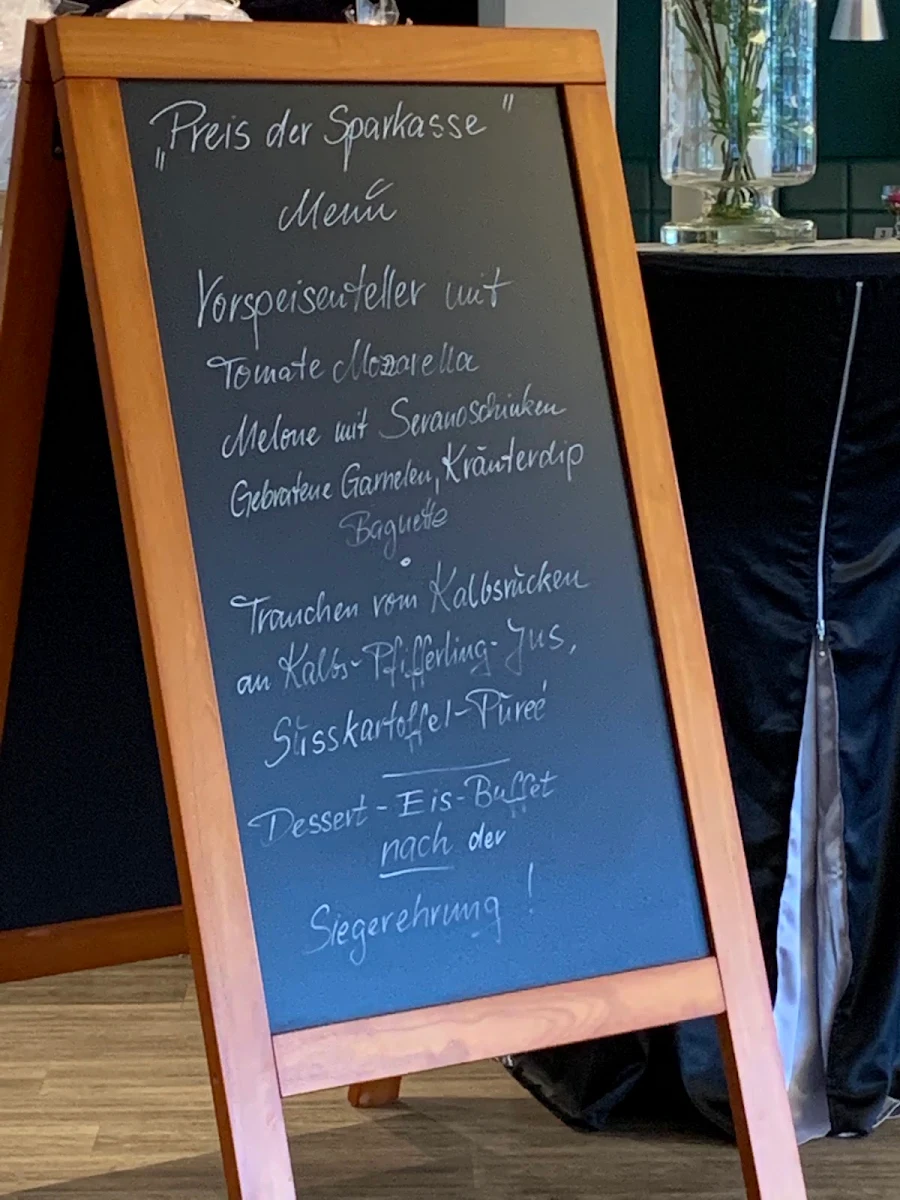 „Preis der Sparkasse"
Menü
Vorspeisenteller mit
Tomate Mozarella
Melone mit Seranoschinken
Gebratene Garnelen, Kräuterdip
Baguette
Tranchen vom Kalbsrücken
an Kalbs-Pfifferling-Jus,
Süsskartoffel-Püreé
Dessert-Eis-Buffet
nach der
Siegerehrung!